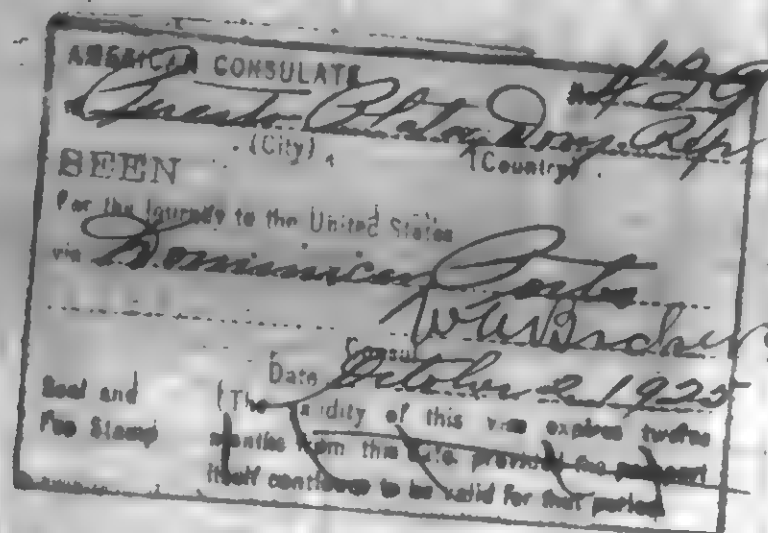 AMERICAN CONSULATE
Puerto Plata, Dom. Rep.
(City) (Country)
SEEN
For the journey to the United States
via Dominican Ports
Consul
Date October 2, 1925
Seal and
Fee Stamp
(The validity of this visa expires twelve
months from this date, provided the passport
itself continues to be valid for that period)